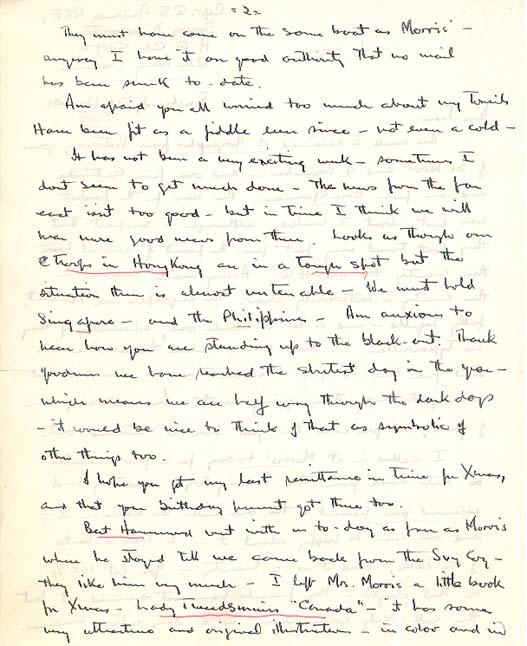 =2=
They must have come on the same boat as Morris' —
anyway I have it on good authority that no mail
has been sunk to-date.
Am afraid you all worried too much about my tonsils
Have been fit as a fiddle ever since — not even a cold —
It has not been a very exciting week — sometimes I
dont seem to get much done — The news from the far
east isn't too good — but in time I think we will
have more good news from there. Looks as though our
troops in Hong Kong are in a tough spot but the
situation there is almost untenable — We must hold
Singapore — and the Philippines — Am anxious to
hear how you are standing up to the black-out. Thank
goodness we have reached the shortest day in the year —
which means we are half way through the dark days
— it would be nice to think of that as symbolic of
other things too.
I hope you got my last remittance in time for Xmas,
and that your birthday present got there too.
Bert Hammond went with us to-day as far as Morris
where he stayed till we came back from the Svy Coy —
they like him very much — I left Mrs. Morris a little book
for Xmas — Lady Tweedsmuirs "Canada" — it has some
very attractive and original illustrations — in color and in